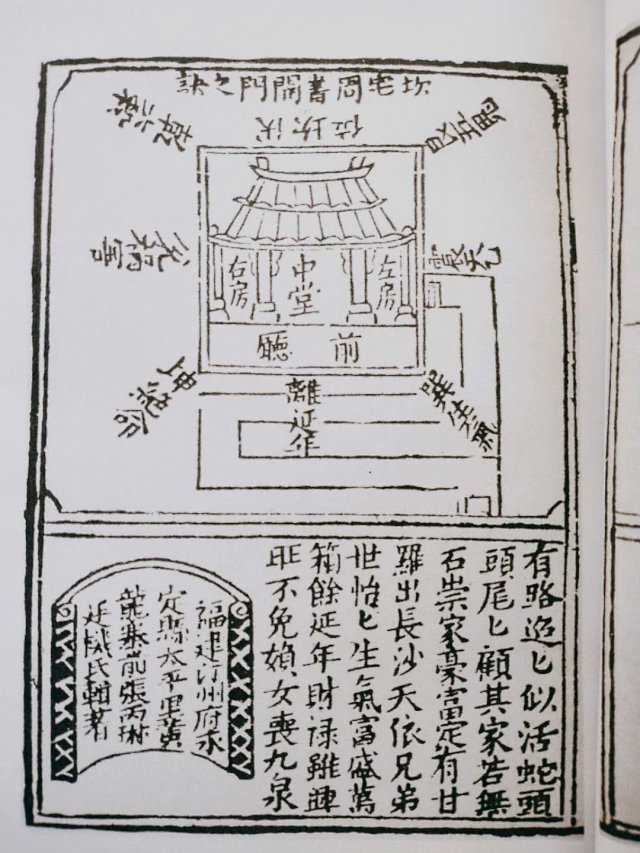 坎宅周書開門之訣
伏坎位
艮五鬼
震天乙
巽生氣
離延年
坤絕命
兌禍害
左房
中堂
右房
前廳
有路迢匕似活蛇頭
頭尾匕顧其家若無
石崇家豪富定有甘
羅出長沙天依兄弟
世怡匕生氣富盛萬
箱餘延年財祿雖
旺不免媍女喪九泉
福建汀州府永
定縣太平里黃
龍寨前張丙琳
廷機氏輔著